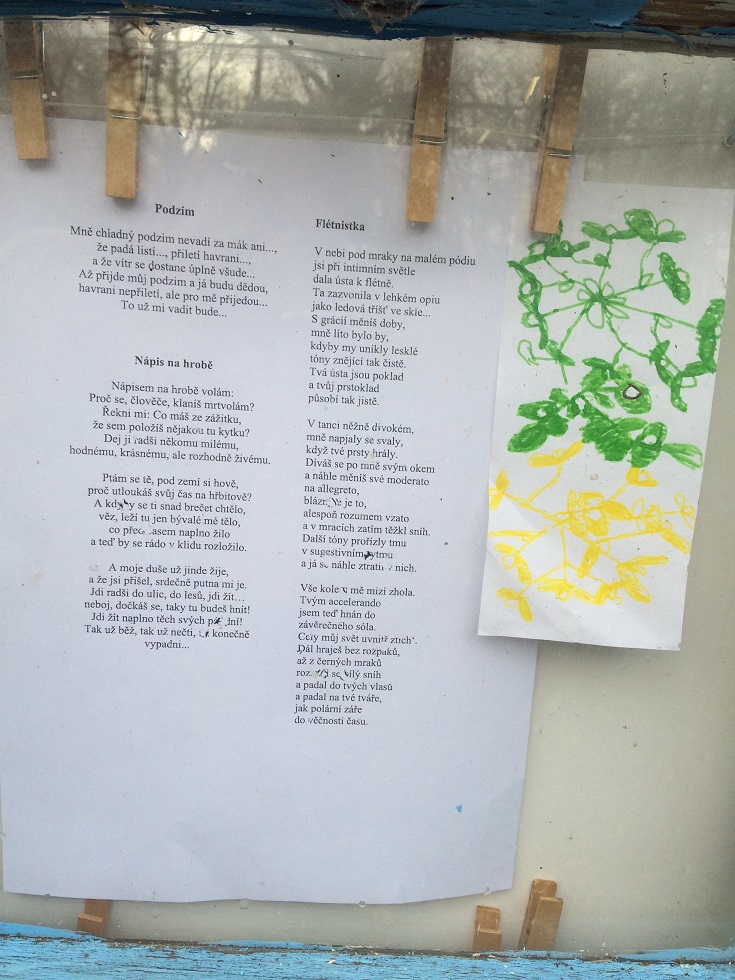 Podzim
Mně chladný podzim nevadí za mák ani...,
že padá listí..., přiletí havrani...,
a že vítr se dostane úplně všude...
Až přijde můj podzim a já budu dědou,
havrani nepřiletí, ale pro mě přijedou...
To už mi vadit bude...
Nápis na hrobě
Nápisem na hrobě volám:
Proč se, člověče, klaníš mrtvolám?
Řekni mi: Co máš ze zážitku,
že sem položíš nějakou tu kytku?
Dej ji radši někomu milému,
hodnému, krásnému, ale rozhodně živému.
Ptám se tě, pod zemí si hově,
proč utloukáš svůj čas na hřbitově?
A kdyby se ti snad brečet chtělo,
věz, leží tu jen bývalé mé tělo,
co přece časem naplno žilo
a teď by se rádo v klidu rozložilo.
A moje duše už jinde žije,
a že jsi přišel, srdečně putna mi je.
Jdi radši do ulic, do lesů, jdi žít...
neboj, dočkáš se, taky tu budeš hnít!
Jdi žít naplno těch svých pár dní!
Tak už běž, tak už nečti, konečně
vypadni...
Flétnistka
V nebi pod mraky na malém pódiu
jsi při intimním světle
dala ústa k flétně.
Ta zazvonila v lehkém opiu
jako ledová tříšť ve skle...
S grácií měníš doby,
mně líto bylo by,
kdyby my unikly lesklé
tóny znějící tak čistě.
Tvá ústa jsou poklad
a tvůj prstoklad
působí tak jistě.
V tanci něžně divokém,
mně napjaly se svaly,
když tvé prsty hrály.
Díváš se po mně svým okem
a náhle měníš své moderato
na allegreto,
bláznivé je to,
alespoň rozumem vzato
a v mracích zatím těžkl sníh.
Další tóny prořízly tmu
v sugestivním rytmu
a já se náhle ztratil v nich.
Vše kolem mě mizí zhola.
Tvým accelerando
jsem teď hnán do
závěrečného sóla.
Celý můj svět uvnitř ztich'.
Dál hraješ bez rozpaků,
až z černých mraků
se bílý sníh
a padal do tvých vlasů
a padal na tvé tváře,
jak polární záře
do věčnosti času.